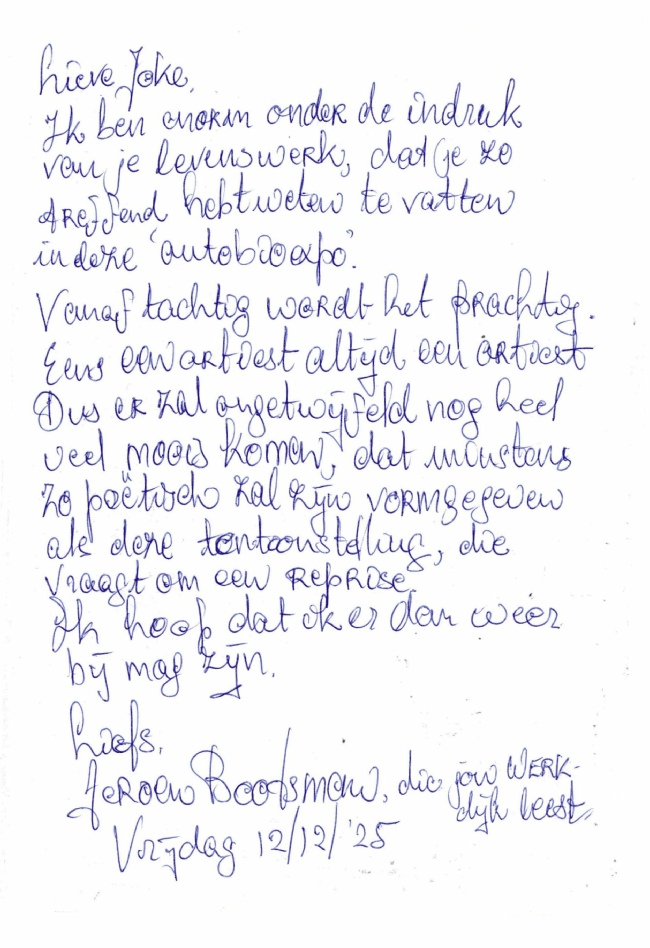 Lieve Joke,
Ik ben enorm onder de indruk
van je levenswerk, dat je zo
treffend hebt weten te vatten
in deze 'autobioexpo'.
Vanaf tachtig wordt het prachtig.
Eens een artiest altijd een artiest
Dus er zal ongetwijfeld nog heel
veel moois komen, dat minstens
zo poëtisch zal zijn vormgegeven
als deze tentoonstelling, die
vraagt om een reprise.
Ik hoop dat ik er dan weer
bij mag zijn.
Liefs,
Jeroen Boofsmen, die jou WERK-
dijk leest
Vrijdag 12/12/'25